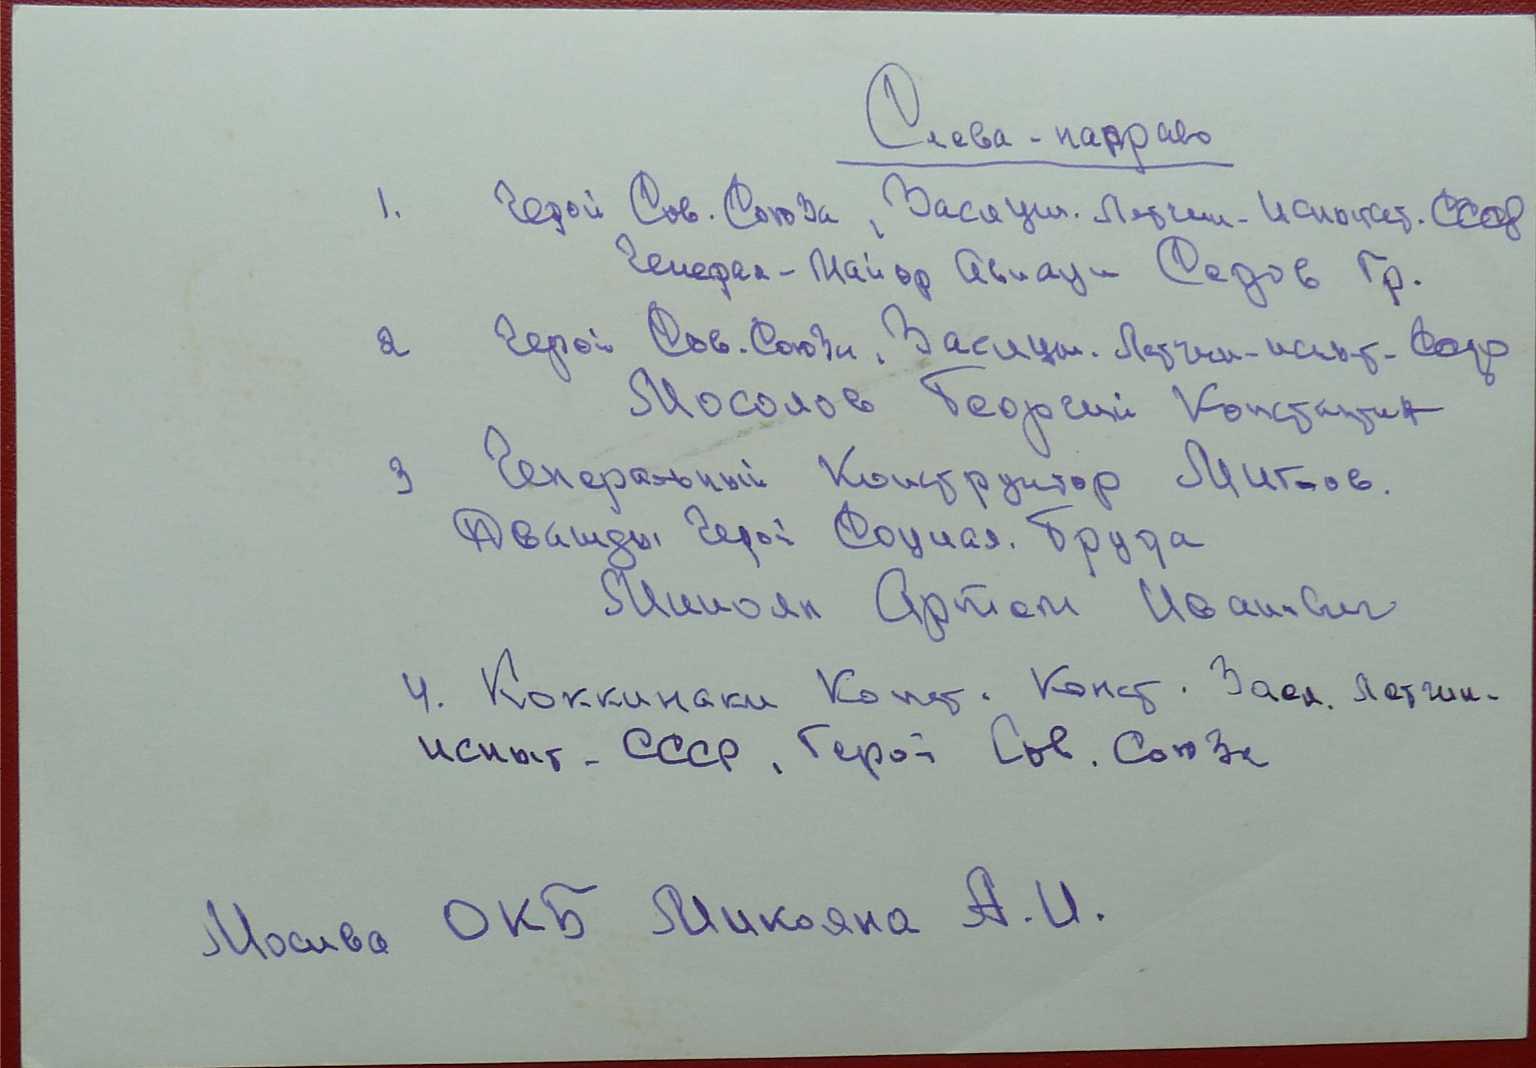 Слева - направо
1. Герой Сов. Союза, Заслуж. Летчик-испытат. СССР
Генерал-Майор Авиаци Седов Гр.
2 Герой Сов. Союза, Заслуж. Летчик-испыт- СССР
Мосолов Георгий Константин
3 Генеральный Конструктор МИГ-ов.
Дважды Герой Социал. Труда
Микоян Артем Иванович
4. Коккинаки Конст. Конст. Засл. Летчик-
испыт- СССР, Герой Сов. Союза
Москва ОКБ Микояна А.И.